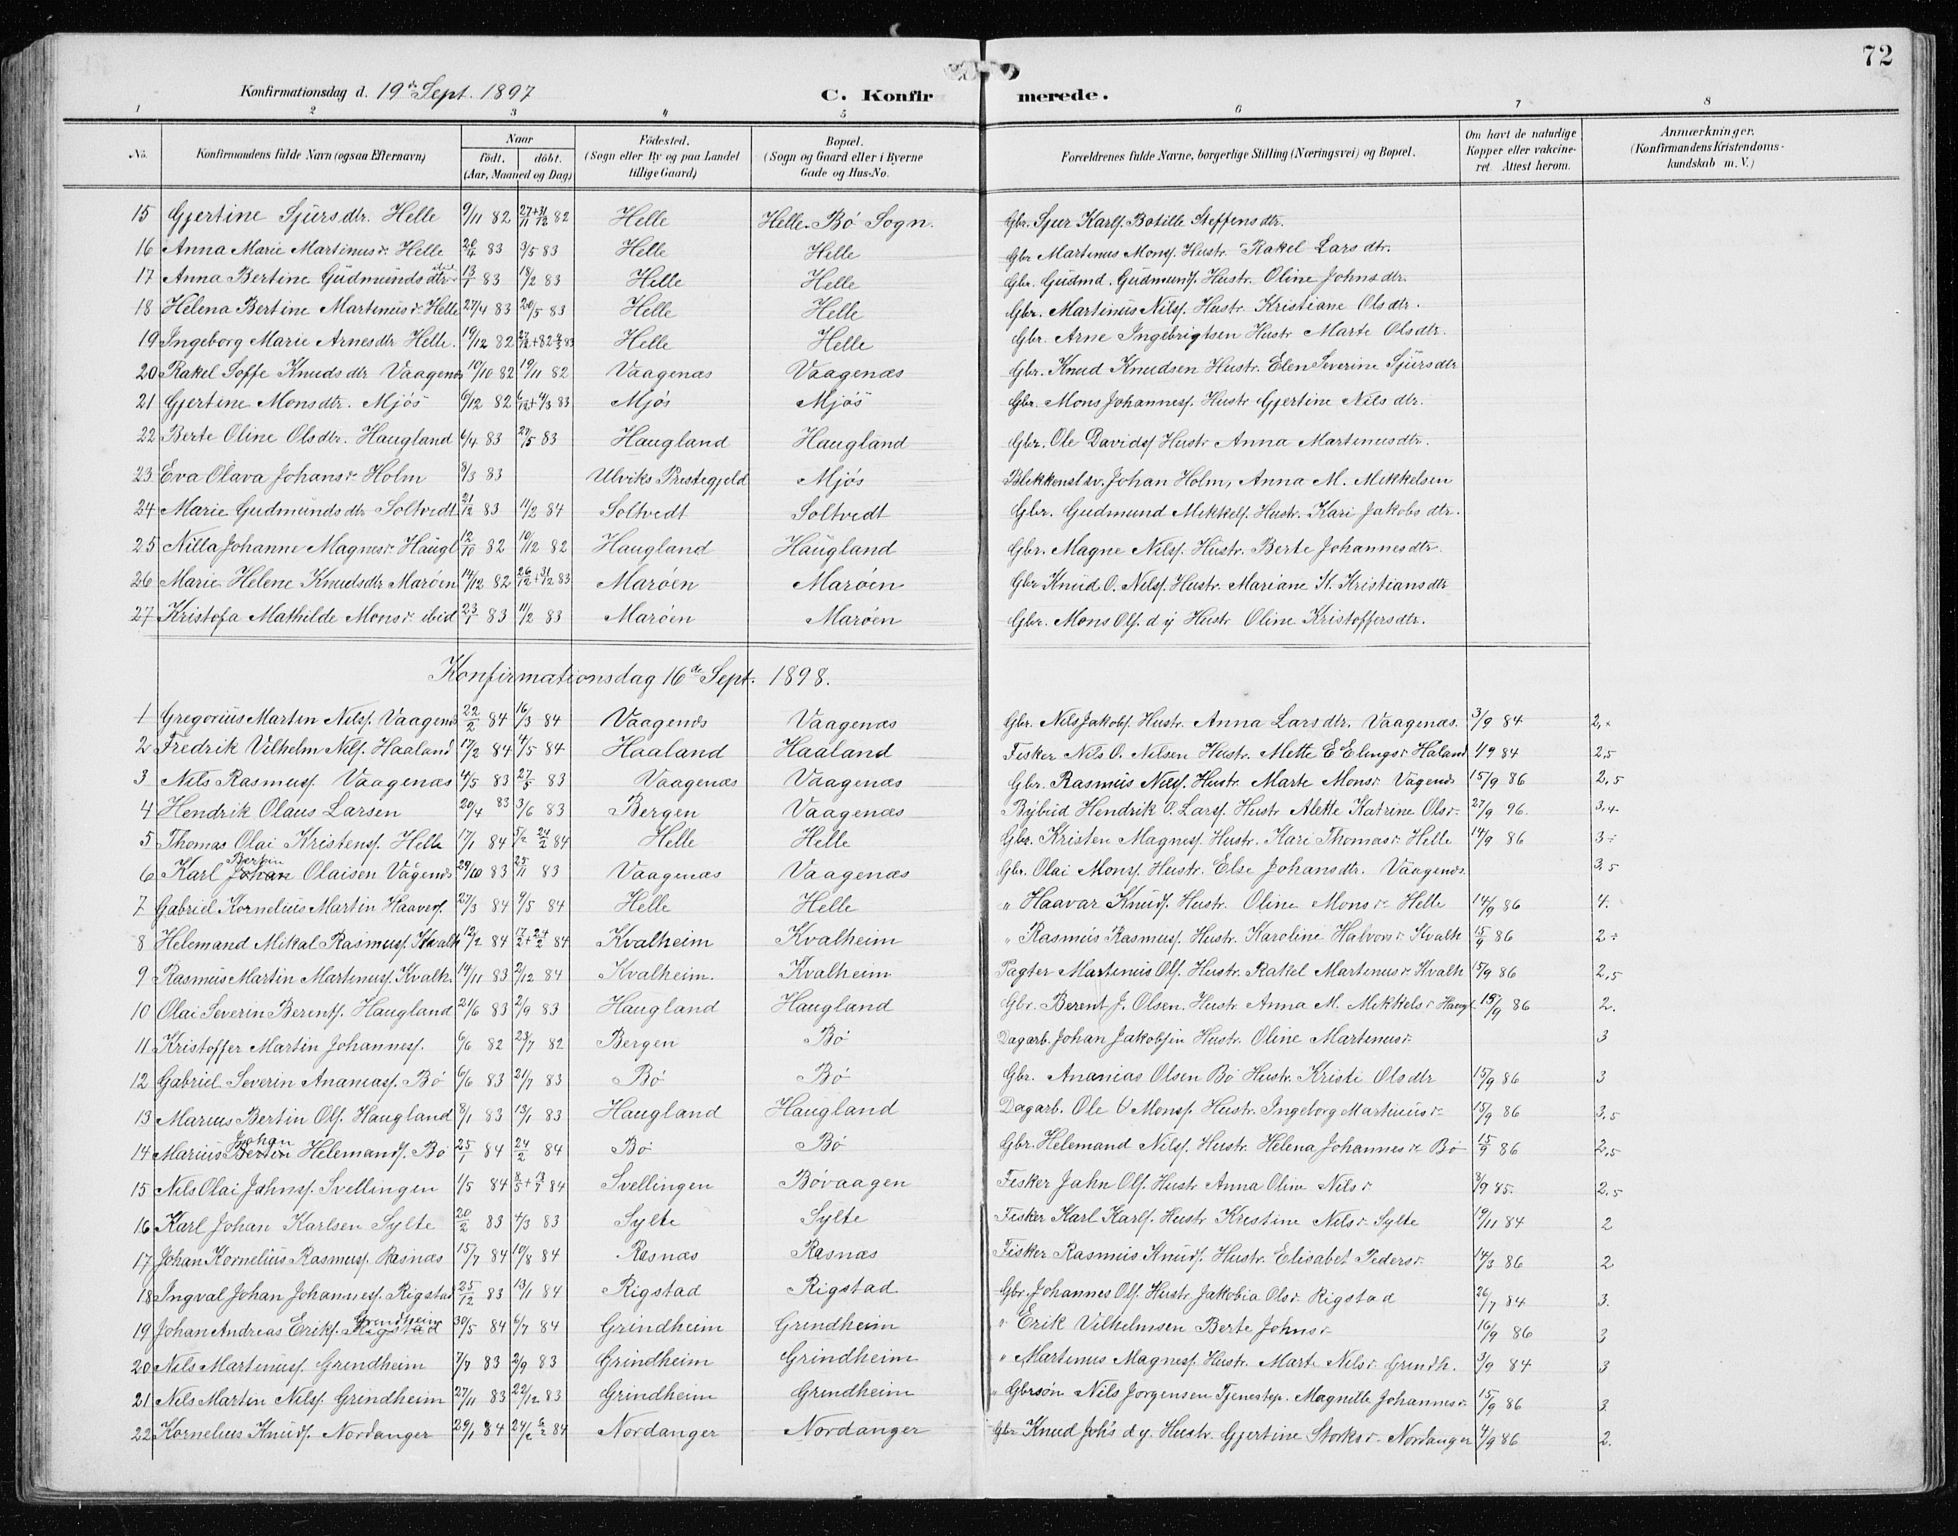 72
Konfirmationsdag d. 19de Sept. 1897 C. Konfirmerede.
1 2 3 4 5 6 7 8
No. Konfirmandens fulde Navn (ogsaa Efternavn) Naar født. døbt. (Aar, Maaned og Dag) Fødested. (Sogn eller By og paa Landet tillige Gaard) Bopæl. (Sogn og Gaard eller i Byerne Gade og Hus-No. Forældrenes fulde Navne, borgerlige Stilling (Næringsvei) og Bopæl. Om havt de naturlige Kopper eller vaccineret. Attest herom. Anmærkninger. (Konfirmandens Kristendomskundskab m. V.)
15 Gjertine Sjursdtr. Helle 9/11 82 27/11+31/12 82 Helle Helle. Bø Sogn. Gbr. Sjur Karls. Botille Steffensdtr.
16 Anna Marie Martinusdr. Helle 20/4 83 3/5 83 Helle Helle Gbr Martinus Mons. Hustr. Rakel Larsdtr.
17 Anna Bertine Gudmundsdtr. ibid 13/1 83 18/2 83 Helle Helle Gbr. Gudmd. Gudmunds. Hustr. Oline Johnsdtr.
18 Helena Bertine Martinusdr. Helle 27/4 83 20/5 83 Helle Helle Gbr. Martinus Nils. Hustr. Kristiane Olsdtr.
19 Ingeborg Marie Arnesdtr Helle. 19/12 82 27/12+82 4/3 83 Helle Helle Gbr. Arne Ingebrigtsen Hustr Marte Olsdtr.
20 Rakel Soffe Knudsdtr Vaagenes 19/10 82 19/11 82 Vaagenæs Vaagenæs Gbr. Knud Knudsen Hustr. Elen Severine Sjursdtr
21 Gjertine Monsdtr. Mjøs 6/12 82 6/12+4/3 83 Mjøs Mjøs Gbr. Mons Johanness. Hustr Gjertine Nilsdtr.
22 Berte Oline Olsdtr. Haugland 6/4 83 27/5 83 Haugland Haugland Gbr. Ole Davids Hustr Anna Martinusdtr.
23 Eva Olava Johansdr. Holm 3/3 83 Ulviks Prestegjeld Mjøs Blikkenslsv. Johan Holm, Anna M. Mikkelsen
24 Marie Gudmundsdtr Soltvedt 21/12 83 11/2 84 Soltvedt Soltvedt Gbr. Gudmund Mikkels. Hustr. Kari Jakobsdtr.
25 Nilla Johanne Magnesdr. Haugl 12/10 82 10/12 82 Haugland Haugland Gbr. Magne Nils. Hustr. Berte Johannesdtr.
26 Marie Helene Knudsdtr Marøen 14/12 82 26/12+31/12 83 Marøen Marøen Gbr Knud O. Nils. Hustr. Mariane K. Kristiansdtr
27 Kristofa Mathilde Monsdr. ibid 23/1 83 11/2 83 Marøen Marøen Gbr. Mons Ols. d y Hustr Oline Kristoffersdtr.
Konfirmationsdag 16de Sept. 1898.
1 Gregorius Martin Nils. Vaagenes 22/2 84 16/3 84 Vaagenes Vaagenæs Gbr. Nils Jakobs. Hustr. Anna Larsdtr. Vaagenæs. 3/9 84 2,÷
2 Fredrik Vilhelm Nils. Haaland 17/2 84 4/5 84 Haaland Haaland Fisker Nils O. Nelsen Hustr. Mette E Elingsr Haland 1/9 84 2,5
3 Nils Rasmus. Vaagenæs 4/5 83 27/5 83 Vaagenæs Vaagenæs Gbr. Rasmus Nils. Hustr. Marte Monsr. Vagenes 15/9 86 2,5
4 Hendrik Olaus Larsen 20/4 83 3/6 83 Bergen Vaagenæs Bybud Hendrik O. Lars. Hustr Alette Katrine Olsr. 27/9 96. 3.4
5 Thomas Olai Kristens. Helle 17/1 84 5/2 24/2 84 Helle Helle Gbr. Kristen Magnes. Hustr. Kari Thomasr Helle 14/9 86 3÷
6 Karl Johan Bertin Olaisen Vågenes 29/10 83 25/11 83 Vaagenæs Vaagenæs Gbr. Olai Mons. Hustr. Else Johansdtr. Vaagenes. 3,5
7 Gabriel Kornelius Martin Haavars. 27/3 84 4/5 84 Helle Helle " Haavar Knuds. Hustr. Oline Monsr. Helle 14/9 86 4.
8 Helemand Mikal Rasmus. Kvalh 12/2 84 17/2+24/2 84 Kvalheim Kvalheim " Rasmus Rasmus. Hustr. Karoline Halvorsr Kvalh 15/9 86 2÷
9 Rasmus Martin Martinus. Kvalh. 14/11 83 2/12 84 Kvalheim. Kvalheim Pagter Martinus Ols. Hustr. Rakel Martinusr. Kvalh 15/9 86 2,5
10 Olai Severin Berents. Haugland 21/6 83 2/9 83 Haugland Haugland Gbr. Berent J. Olsen. Hustr Anna M. Mikkelsr Haugl. 15/9 86 2.
11 Kristoffer Martin Johannes. 6/6 82 23/7 82 Bergen Bø Dagarb. Johan Jakobsen Hustr. Oline Martinusr. 3
12 Gabriel Severin Ananias. Bø 6/6 83 21/7 83 Bø Bø Gbr. Ananias Olsen Bø Hustr. Kristi Olsdtr 15/9 86 3
13 Marius Bertin Ols. Haugland 8/1 83 13/1 83 Haugland Haugland Dagarb. Ole O Mons. Hustr. Ingeborg Martinusr. 15/9 86 3,5
14 Marius Bertin Johan Helemands. Bø 25/1 84 24/2 84 Bø Bø Gbr. Helemand Nils. Hustr. Helena Johannesr. Bø 15/9 86 2,5
15 Nils Olai Jahns. Svellingen 1/5 84 8/5+13/7 84 Svellingen Bøvaagen Fisker Jahn Ols. Hustr Anna Oline Nilsr 3/9 85. 2,5
16 Karl Johan Karlsen Sylte 20/2 83 4/3 83 Sylte Sylte Fisker Karl Karls. Hustr Kristine Nilsr. Sylte 19/11 84 2
17 Johan Kornelius Rasmus. Rasnæs 15/7 84 10/8 84 Rasnæs Rasnæs Fisker Rasmus Knuds. Hustr. Elisabet Pedersr. 14/3 86 2
18 Ingval Johan Johannes. Rigstad 25/12 83 13/1 84 Rigstad Rigstad Gbr. Johannes Ols. Hustr. Jakobia Olsr. Rigstad 26/7 84 3.
19 Johan Andreas Eriks. Rigstad Grindheim 30/5 84 6/7 84 Grindheim Grindheim " Erik Vilhelmsen Berte Johnsr 16/9 86 3
20 Nils Martinus. Grindheim 7/7 83 2/9 83 Grindheim Grindheim " Martinus Magnes. Hustr. Marte Nilsr. Grindh. 3/9 84 3
21 Nils Martin Nils. Grindheim 27/11 83 22/12 83 Grindheim Grindheim " Gbrsøn Nils Jorgensen Tjenestep. Magnille Johannesr. 15/9 86 3
22 Kornelius Knuds. Nordanger 29/1 84 24/2 84 Nordanger Nordanger Gbr Knud Johs d.y. Hustr. Gjertine Storksr. Nordanger 4/9 86 2.